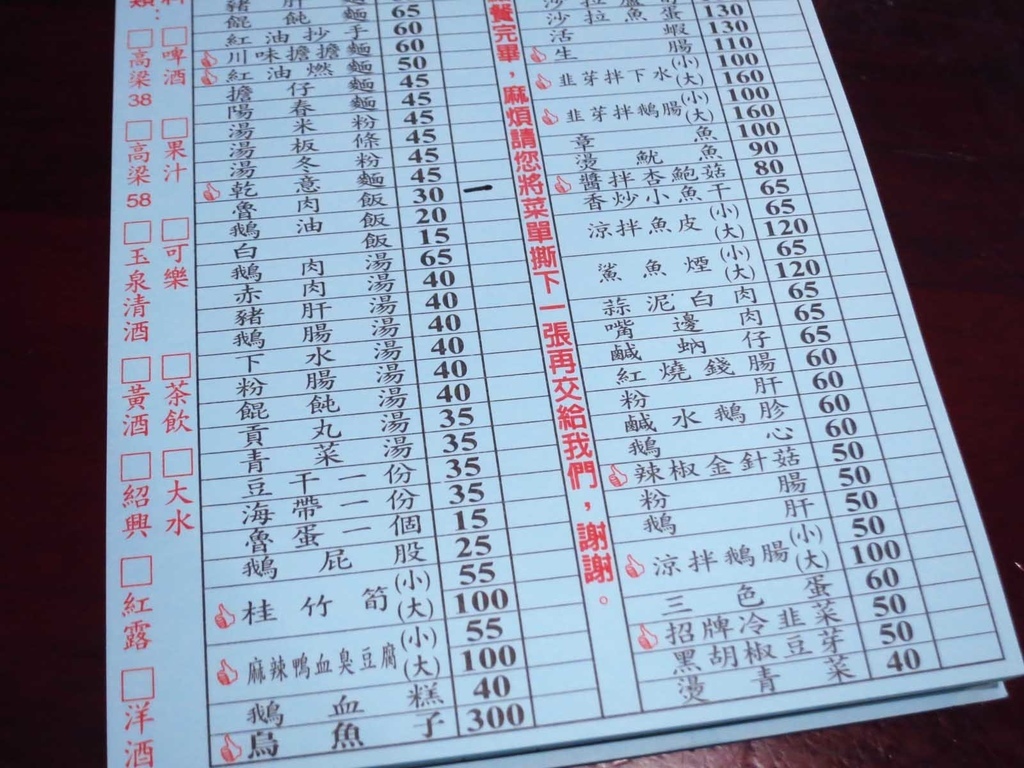 類：
□高粱38
□高粱58
□玉泉清酒
□黃酒
□紹興
□紅露
□洋酒
料
□啤酒
□果汁
□可樂
□茶飲
□大水
豬肝麵
餛飩麵 65
紅油抄手 60
川味擔擔麵 60
紅油燃麵 50
擔仔麵 45
陽春麵 45
湯米粉 45
湯板條 45
湯冬粉 45
乾意麵 45
魯肉飯 30 一
鵝油飯 20
白飯 15
鵝肉湯 65
赤肉湯 40
豬肝湯 40
鵝腸湯 40
下水湯 40
粉腸湯 40
餛飩湯 40
貢丸湯 35
青菜湯 35
豆干一份 35
海帶一份 35
魯蛋一個 15
鵝屁股 25
桂竹筍 (小) 55
(大) 100
麻辣鴨血臭豆腐 (小) 55
(大) 100
鵝血糕 40
烏魚子 300
餐完畢，麻煩請您將菜單撕下一張再交給我們，謝謝。
沙拉蘆筍
沙拉魚蛋 130
活蝦 130
生腸 110
韭芽拌下水 (小) 100
(大) 160
韭芽拌鵝腸 (小) 100
(大) 160
章魚 100
燙魷魚 90
醬拌杏鮑菇 80
香炒小魚干 65
涼拌魚皮 (小) 65
(大) 120
鯊魚煙 (小) 65
(大) 120
蒜泥白肉 65
嘴邊肉 65
鹹蚋仔 65
紅燒錢腸 60
粉肝 60
鹹水鵝胗 60
鵝心 60
辣椒金針菇 50
粉腸 50
鵝肝 50
涼拌鵝腸 (小) 50
(大) 100
三色蛋 60
招牌冷韭菜 50
黑胡椒豆芽 50
燙青菜 40